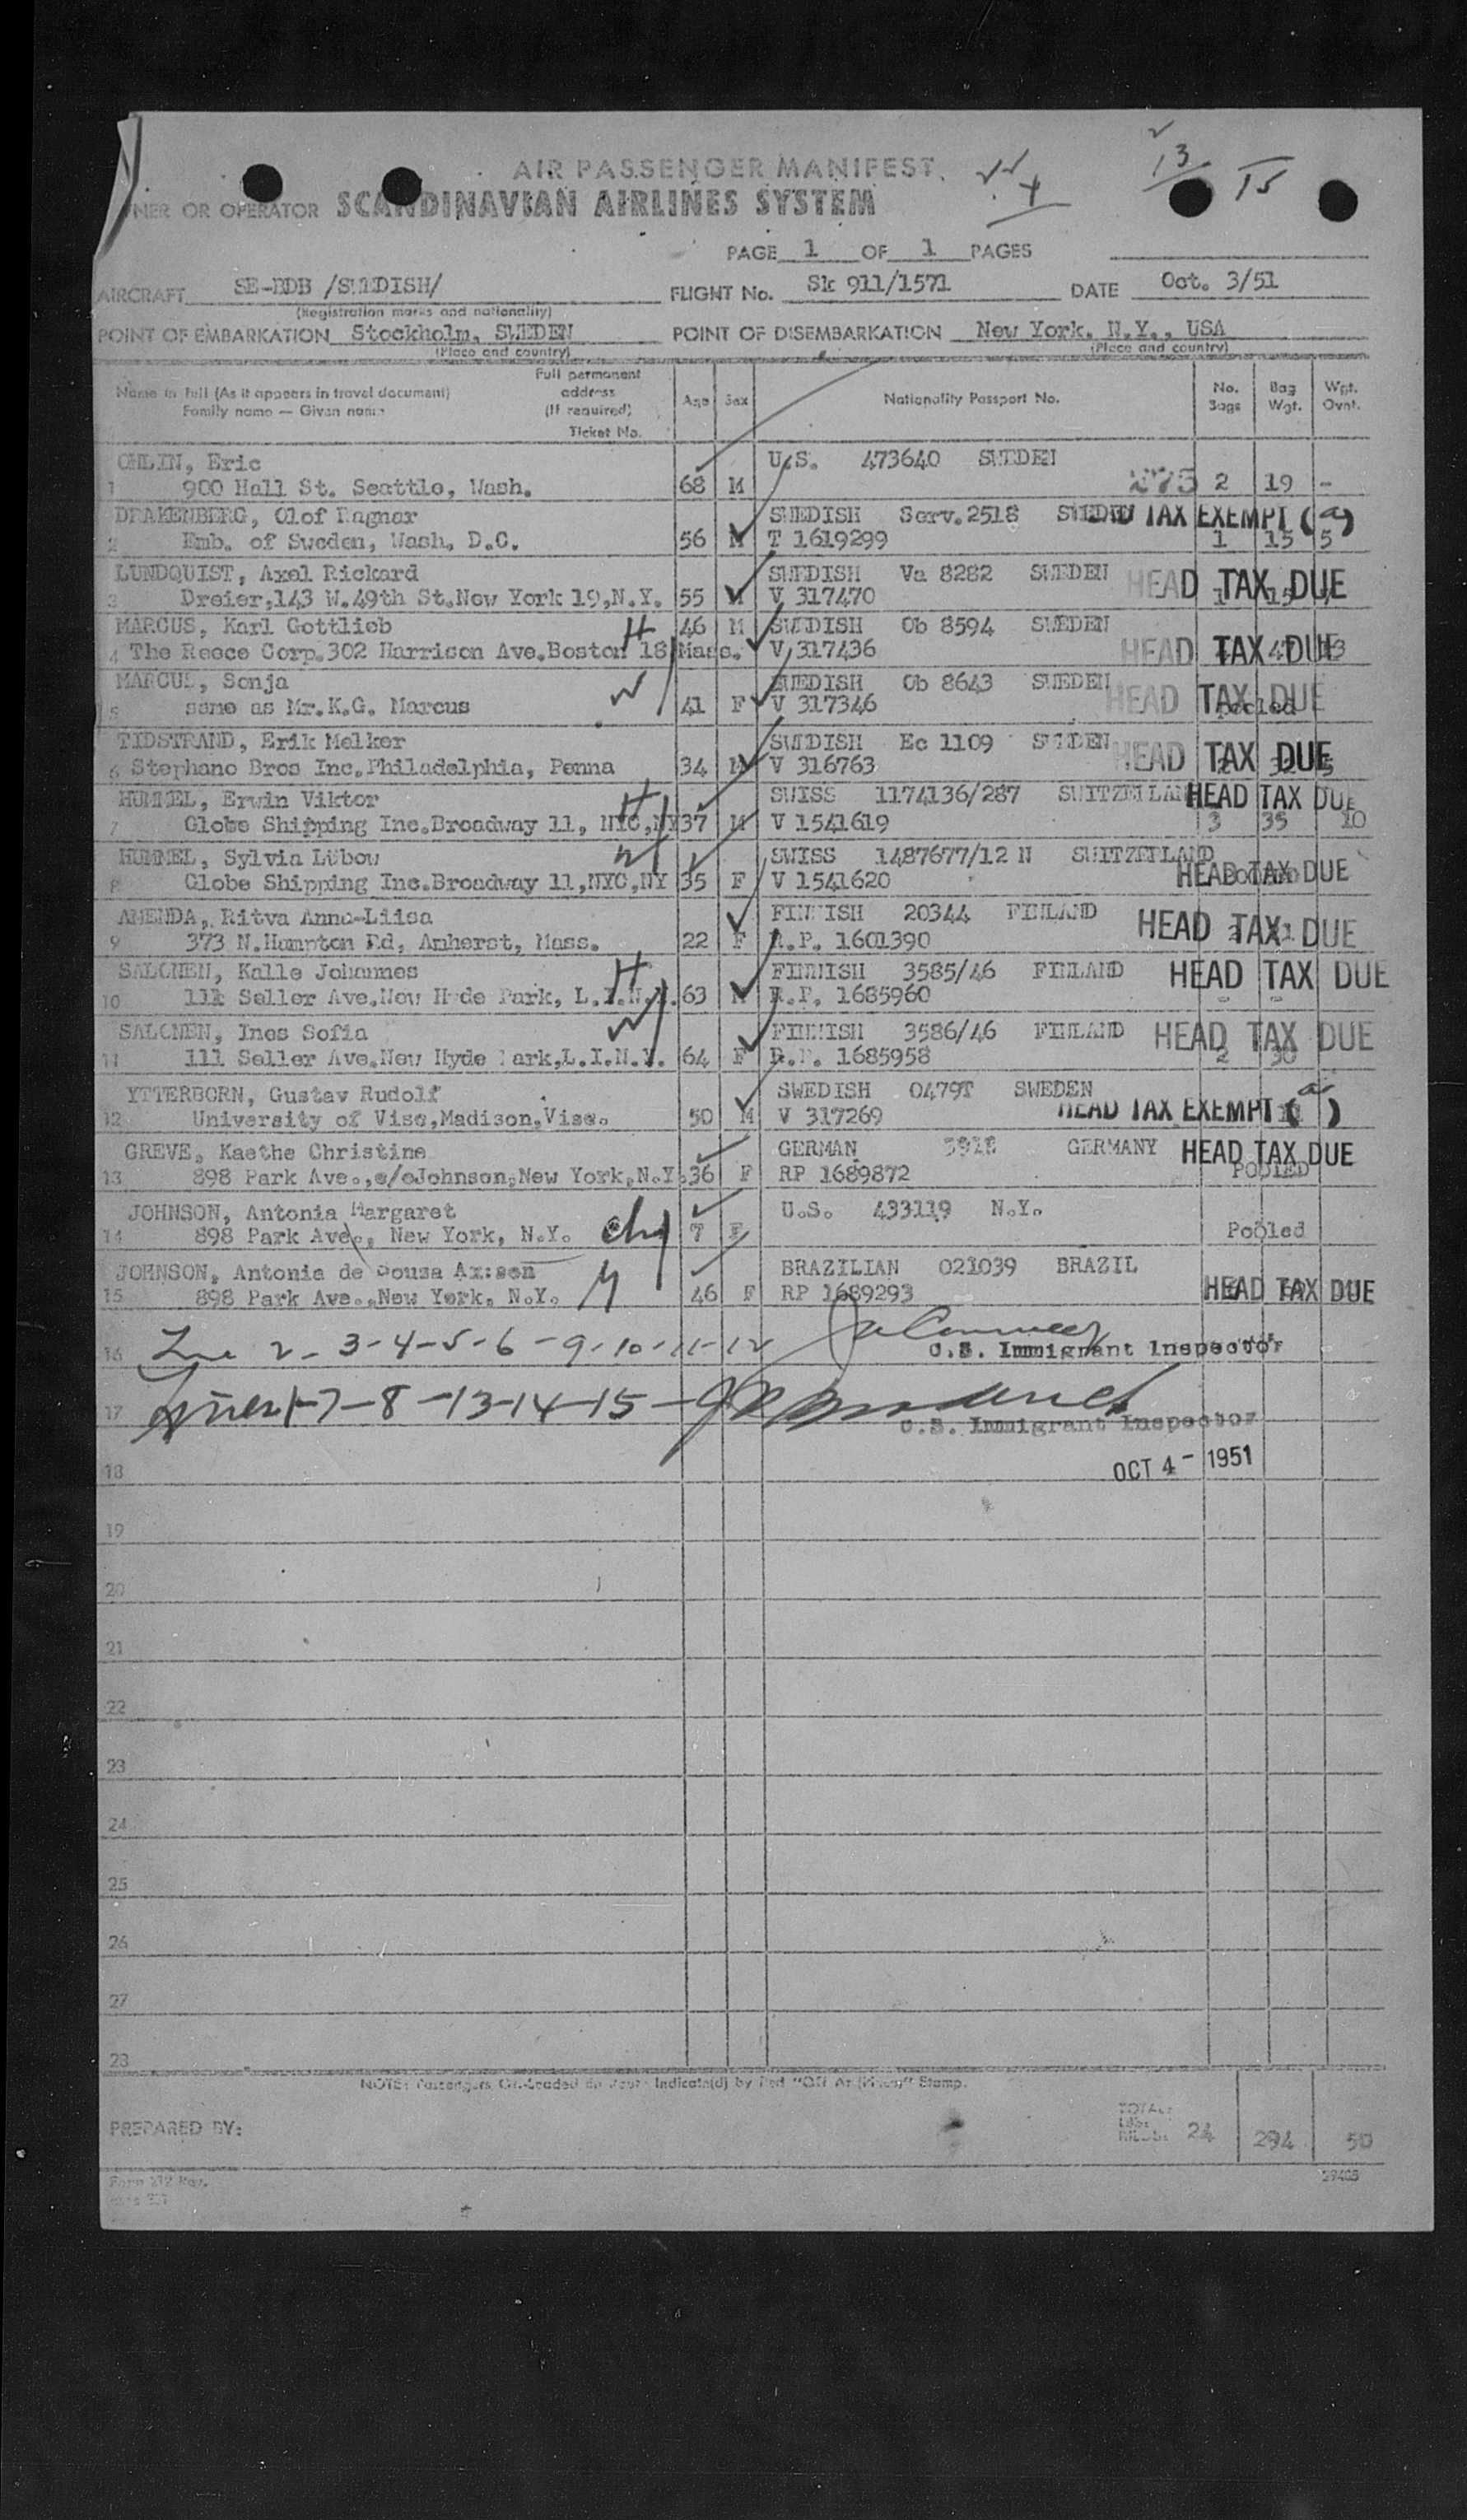 AIR PASSENGER MANIFEST
13 15
OR OPERATOR SCANDINAVIAN AIRLINES SYSTEM
PAGE 1 OF 1 PAGES
AIRCRAFT SE-BDB /SWEDISH/ FLIGHT No. Sk 911/1571 DATE Oct. 3/51
(Registration marks and nationality)
POINT OF EMBARKATION Stockholm, SWEDEN POINT OF DISEMBARKATION New York, N.Y., USA
(Place and country) (Place and country)
Name in Full (As it appears in travel document) Family name — Given name
Full permanent address (If required) Ticket No.
Age Sex Nationality Passport No. No. Bags Bag Wgt. Wgt. Ovnt.
OHLIN, Eric U.S. 473640 SWEDEN
1 900 Hall St. Seattle, Wash. 68 M 2 19 -
DRAKENBERG, Olof Ragnar SWEDISH Serv.2518 TAX EXEMPT (a)
2 Emb. of Sweden, Wash, D.C. 56 M T 1619299 1 15 5
LUNDQUIST, Axel Rickard SWEDISH Va 8282 SWEDEN HEAD TAX DUE
3 Dreier,143 W.49th St.New York 19,N.Y. 55 M V 317470
MARCUS, Karl Gottlieb H 46 M SWEDISH Ob 8594 SWEDEN
4 The Reece Corp.302 Harrison Ave.Boston 18 Mass. V 317436 HEAD TAX DUE
MARCUS, Sonja W SWEDISH Ob 8643 SWEDEN HEAD TAX DUE
5 same as Mr.K.G. Marcus 41 F V 317346 Pooled
TIDSTRAND, Erik Melker SWEDISH Ec 1109 SWEDEN HEAD TAX DUE
6 Stephano Bros Inc.Philadelphia, Penna 34 M V 316763
HUMMEL, Erwin Viktor H SWISS 1174136/287 SWITZERLAND HEAD TAX DUE
7 Globe Shipping Inc.Broadway 11, NYC,NY 37 M V 1541619 3 35 10
HUMMEL, Sylvia Lübow W SWISS 1487677/12 N SWITZERLAND
8 Globe Shipping Inc.Broadway 11,NYC,NY 35 F V 1541620 HEAD TAX DUE
AHENDA, Ritva Anna-Liisa FINNISH 20344 FINLAND HEAD TAX DUE
9 373 N.Hampton Rd, Amherst, Mass. 22 F R.P. 1601390
SALONEN, Kalle Johannes H FINNISH 3585/46 FINLAND HEAD TAX DUE
10 111 Seller Ave.New Hyde Park, L.I.N.Y. 63 M R.P. 1685960
SALONEN, Ines Sofia W FINNISH 3586/46 FINLAND HEAD TAX DUE
11 111 Seller Ave.New Hyde Park,L.I.N.Y. 64 F R.P. 1685958 2 30
YTTERBORN, Gustav Rudolf SWEDISH 0479T SWEDEN
12 University of Visc,Madison,Visc. 50 M V 317269 HEAD TAX EXEMPT (a)
GREVE, Kaethe Christine GERMAN GERMANY HEAD TAX DUE
13 898 Park Ave.,c/oJohnson,New York,N.Y. 36 F RP 1689872 POOLED
JOHNSON, Antonia Margaret U.S. 433119 N.Y.
14 898 Park Ave., New York, N.Y. ch 7 F Pooled
JOHNSON, Antonia de Sousa BRAZILIAN 021039 BRAZIL
15 898 Park Ave.,New York, N.Y. M 46 F RP 1689293 HEAD TAX DUE
16 Line 2-3-4-5-6-9-10-11-12 U.S. Immigrant Inspector
17 Lines 1-7-8-13-14-15 U.S. Immigrant Inspector
18 OCT 4 - 1951
19
20
21
22
23
24
25
26
27
28
NOTE: Passengers Off-Loaded En Route Indicate(d) by Red "Off At (Place)" Stamp.
PREPARED BY: TOTAL: LBS. KILOS: 24 294 50
29405